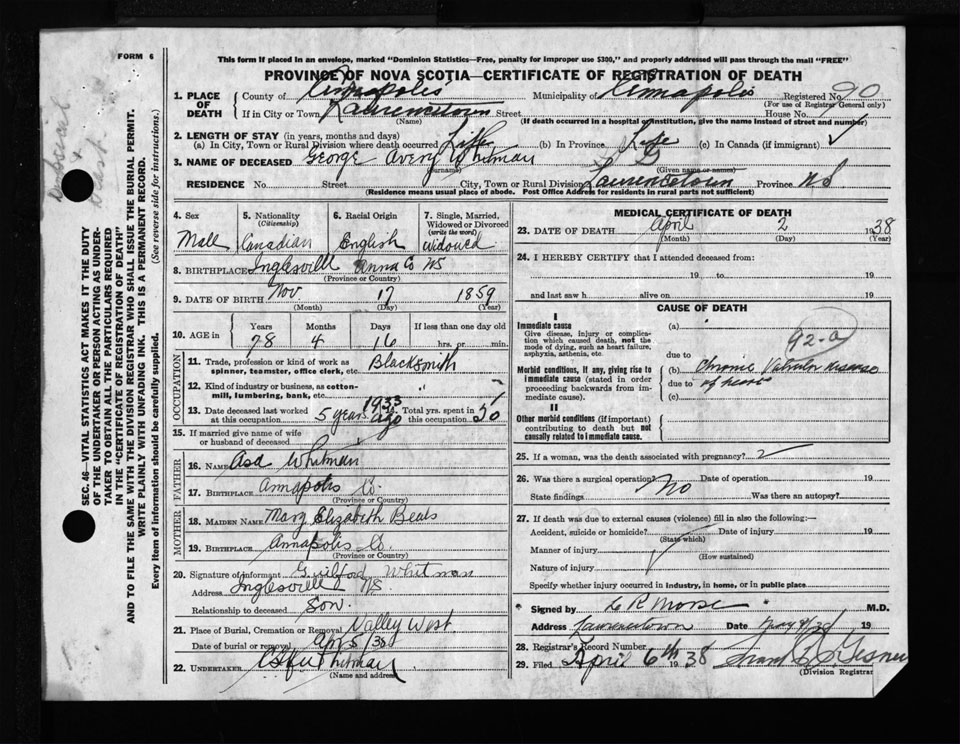 FORM 6
This form if placed in an envelope, marked "Dominion Statistics—Free, penalty for improper use $300," and properly addressed will pass through the mail "FREE"
PROVINCE OF NOVA SCOTIA—CERTIFICATE OF REGISTRATION OF DEATH
1. PLACE OF DEATH
County of Annapolis Municipality of Annapolis Registered No. 90
(For use of Registrar General only)
If in City or Town Lawrencetown Street House No.
(Name) (If death occurred in a hospital or institution, give the name instead of street and number)
2. LENGTH OF STAY (in years, months and days)
(a) In City, Town or Rural Division where death occurred Life (b) In Province Life (c) In Canada (if immigrant) ✓
3. NAME OF DECEASED George Avery Whitman
(Surname) (Given name or names)
RESIDENCE No. Street City, Town or Rural Division Lawrencetown Province NS
(Residence means usual place of abode. Post Office Address for residents in rural parts not sufficient)
4. Sex Male
5. Nationality (Citizenship) Canadian
6. Racial Origin English
7. Single, Married, Widowed or Divorced (write the word) Widowed
8. BIRTHPLACE Inglesville Anna Co NS
(Province or Country)
9. DATE OF BIRTH Nov 17 1859
(Month) (Day) (Year)
10. AGE in Years Months Days If less than one day old
78 4 16 hrs. or min.
OCCUPATION
11. Trade, profession or kind of work as spinner, teamster, office clerk, etc. Blacksmith
12. Kind of industry or business, as cotton-mill, lumbering, bank, etc. "
13. Date deceased last worked at this occupation 5 years ago 1933 Total yrs. spent in this occupation 50
15. If married give name of wife or husband of deceased
FATHER
16. NAME Asa Whitman
17. BIRTHPLACE Annapolis Co.
(Province or Country)
MOTHER
18. MAIDEN NAME Mary Elizabeth Beals
19. BIRTHPLACE Annapolis Co.
(Province or Country)
20. Signature of informant Guilford Whitman
Address Inglesville NS.
Relationship to deceased Son.
21. Place of Burial, Cremation or Removal Valley West.
Date of burial or removal Apr 5/38
22. UNDERTAKER Whitman
(Name and address)
MEDICAL CERTIFICATE OF DEATH
23. DATE OF DEATH April 2 1938
(Month) (Day) (Year)
24. I HEREBY CERTIFY that I attended deceased from:
19 to 19
and last saw h alive on 19
CAUSE OF DEATH
I
Immediate cause
Give disease, injury or complication which caused death, not the mode of dying, such as heart failure, asphyxia, asthenia, etc.
Morbid conditions, if any, giving rise to immediate cause (stated in order proceeding backwards from immediate cause).
II
Other morbid conditions (if important) contributing to death but not causally related to immediate cause.
(a)
92-a
due to
(b) Chronic Valvular disease
due to of heart
(c)
25. If a woman, was the death associated with pregnancy?
26. Was there a surgical operation? No Date of operation 19
State findings Was there an autopsy?
27. If death was due to external causes (violence) fill in also the following:—
Accident, suicide or homicide? Date of injury 19
(State which)
Manner of injury
(How sustained)
Nature of injury
Specify whether injury occurred in industry, in home, or in public place
Signed by L R Morse M.D.
Address Lawrencetown Date
28. Registrar's Record Number
29. Filed April 6th 1938
(Division Registrar)
SEC. 46—VITAL STATISTICS ACT MAKES IT THE DUTY
OF THE UNDERTAKER OR PERSON ACTING AS UNDER-
TAKER TO OBTAIN ALL THE PARTICULARS REQUIRED
IN THE "CERTIFICATE OF REGISTRATION OF DEATH"
AND TO FILE THE SAME WITH THE DIVISION REGISTRAR WHO SHALL ISSUE THE BURIAL PERMIT.
WRITE PLAINLY WITH UNFADING INK. THIS IS A PERMANENT RECORD.
Every item of information should be carefully supplied. (See reverse side for instructions.)